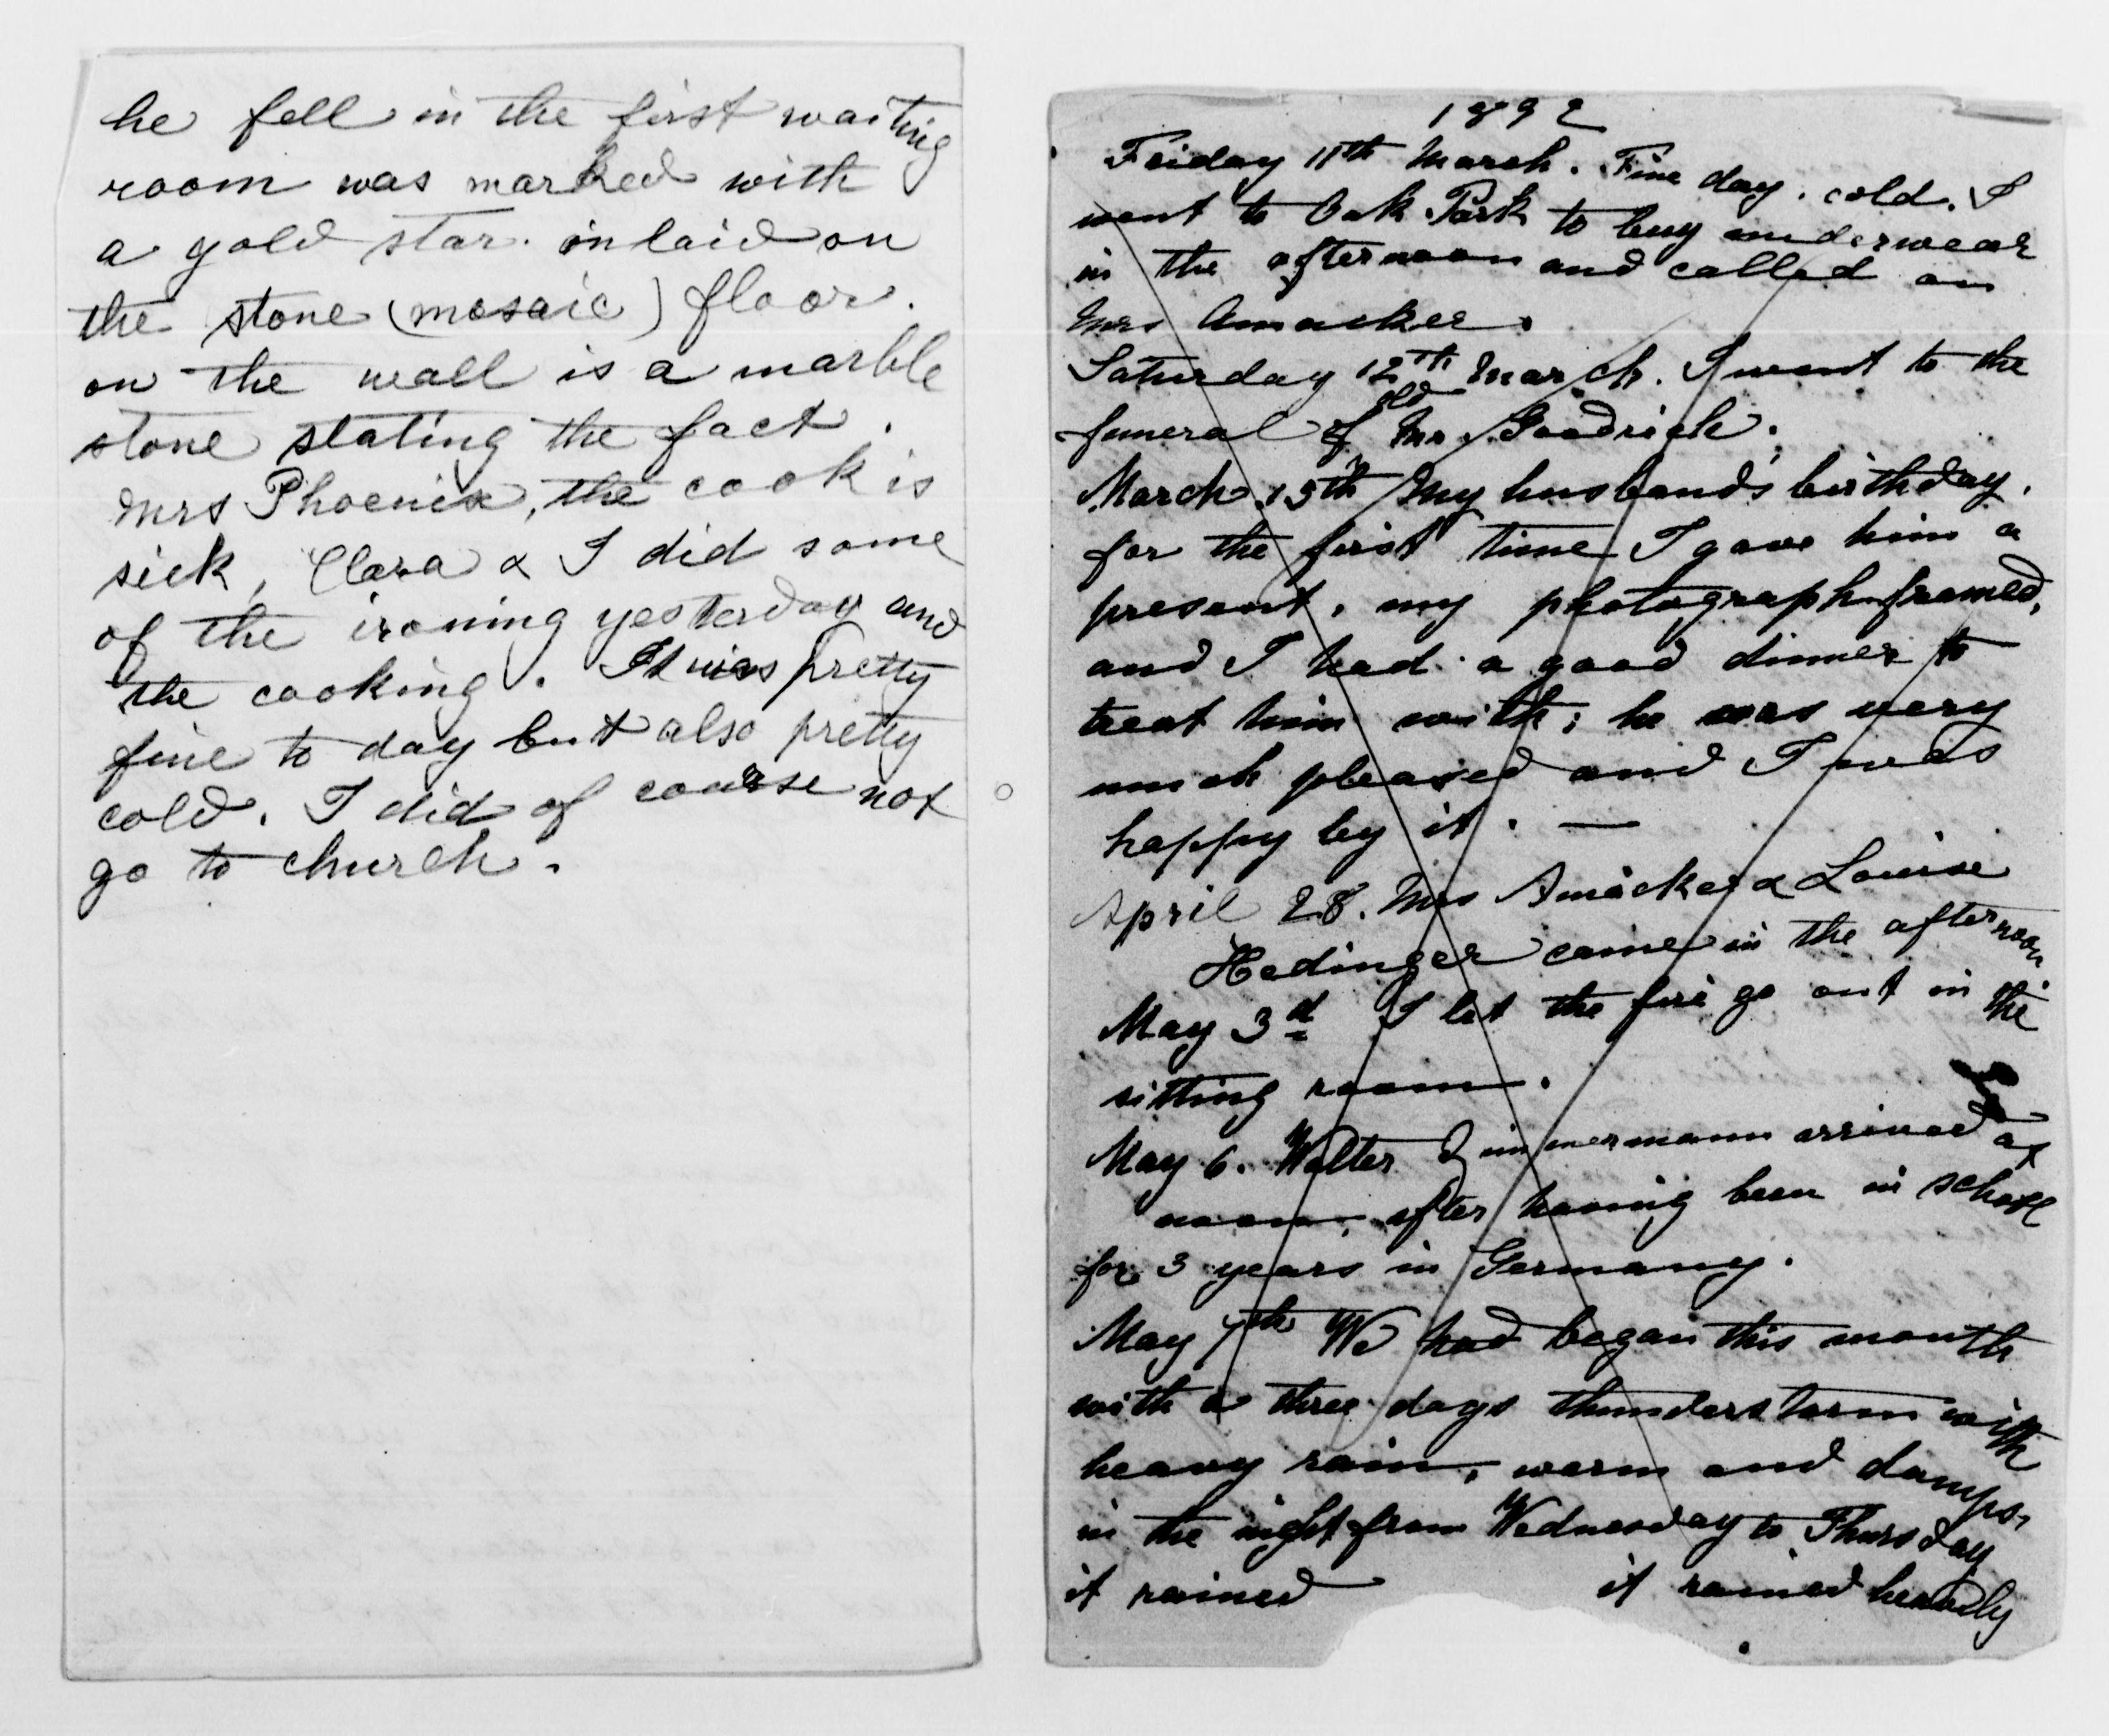 he fell in the first waiting
room was marked with
a gold star. inlaid on
the stone (mosaic) floor.
on the wall is a marble
stone stating the fact.
Mrs Phoenix, the cook is
sick, Clara & I did some
of the ironing yesterday and
the cooking. It was pretty
fine to day but also pretty
cold. I did of course not
go to church.
1892
Friday 11th March. Fine day. cold. I
went to Oak Park to buy underwear
in the afternoon and called on
Mrs Amacker.
Saturday 12th March. I went to the
funeral of old Mr. Goodrich.
March 15th My husband's birthday.
for the first time I gave him a
present, my photograph framed,
and I had a good dinner to
treat him with; he was very
much pleased and I was
happy by it. —
April 28. Mrs Amacker & Louise
Hedinger came in the afternoon.
May 3d I let the fire go out in the
sitting room.
May 6. Walter Zimmermann arrived at
noon, after having been in school
for 3 years in Germany.
May 7th We had began this month
with a three days thunderstorm with
heavy rain, warm and damps,
in the night from Wednesday to Thursday
it rained it rained heavily